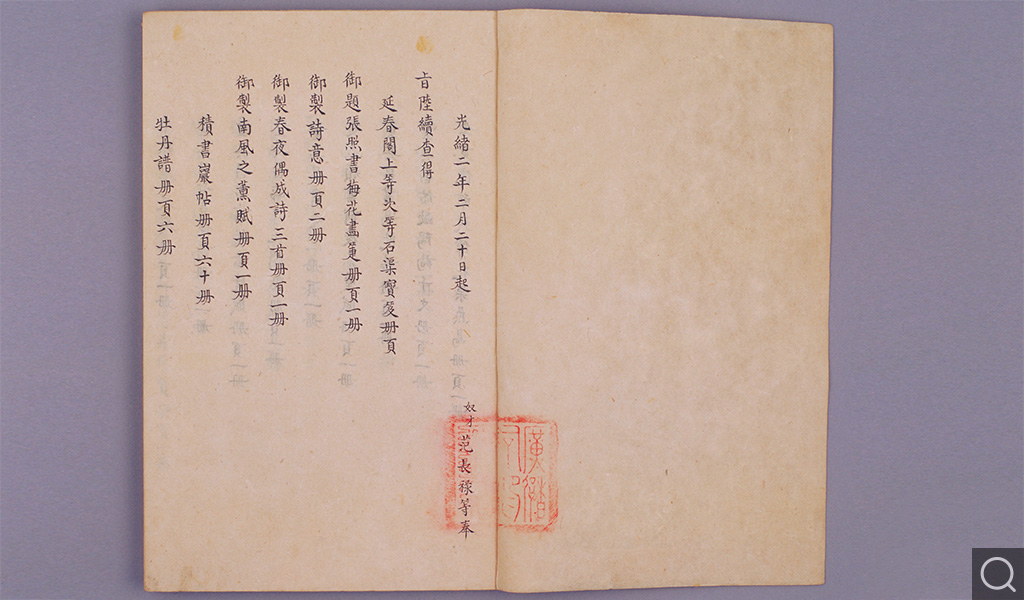 光緒二年二月二十日起 奴才范長祿等奉
旨陸續查得
延春閣上等次等石渠寶笈册頁
御題張照書梅花畫册頁一册
御製詩意册頁二册
御製春夜偶成詩三首册頁一册
御製南風之薰賦册頁一册
積書巖帖册頁六十册
牡丹譜册頁六册